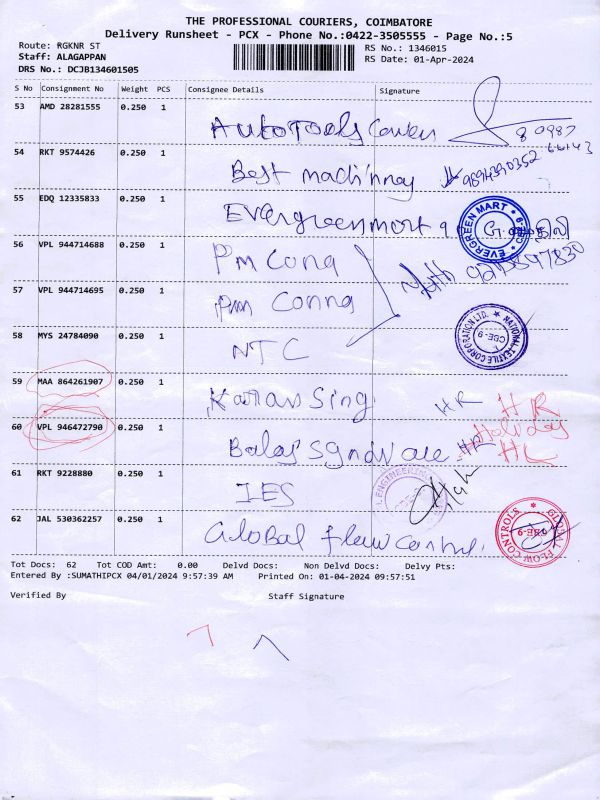 THE PROFESSIONAL COURIERS, COIMBATORE
Delivery Runsheet - PCX - Phone No.:0422-3505555 - Page No.:5
Route: RGKNR ST
Staff: ALAGAPPAN
DRS No.: DCJB134601505
RS No.: 1346015
RS Date: 01-Apr-2024
S No Consignment No Weight PCS Consignee Details Signature
53 AMD 28281555 0.250 1 AutoTools
54 RKT 9574426 0.250 1 Best machinnay 9894390352
55 EDQ 12335833 0.250 1 Evergreenmart
EVERGREEN MART
56 VPL 944714688 0.250 1 Pm Cona
57 VPL 944714695 0.250 1 Pm Conna
58 MYS 24784090 0.250 1 NTC
NATIONAL TEXTILE CORPORATION LTD. CBE-9
59 MAA 864261907 0.250 1 Karan Sing HR HR
60 VPL 946472790 0.250 1 Balaj HR Holiday
HL
61 RKT 9228880 0.250 1 IES
ENGINEERING
62 JAL 530362257 0.250 1 Global flow control
GLOBAL FLOW CONTROLS CBE-9
Tot Docs: 62 Tot COD Amt: 0.00 Delvd Docs: Non Delvd Docs: Delvy Pts:
Entered By :SUMATHIPCX 04/01/2024 9:57:39 AM Printed On: 01-04-2024 09:57:51
Verified By Staff Signature